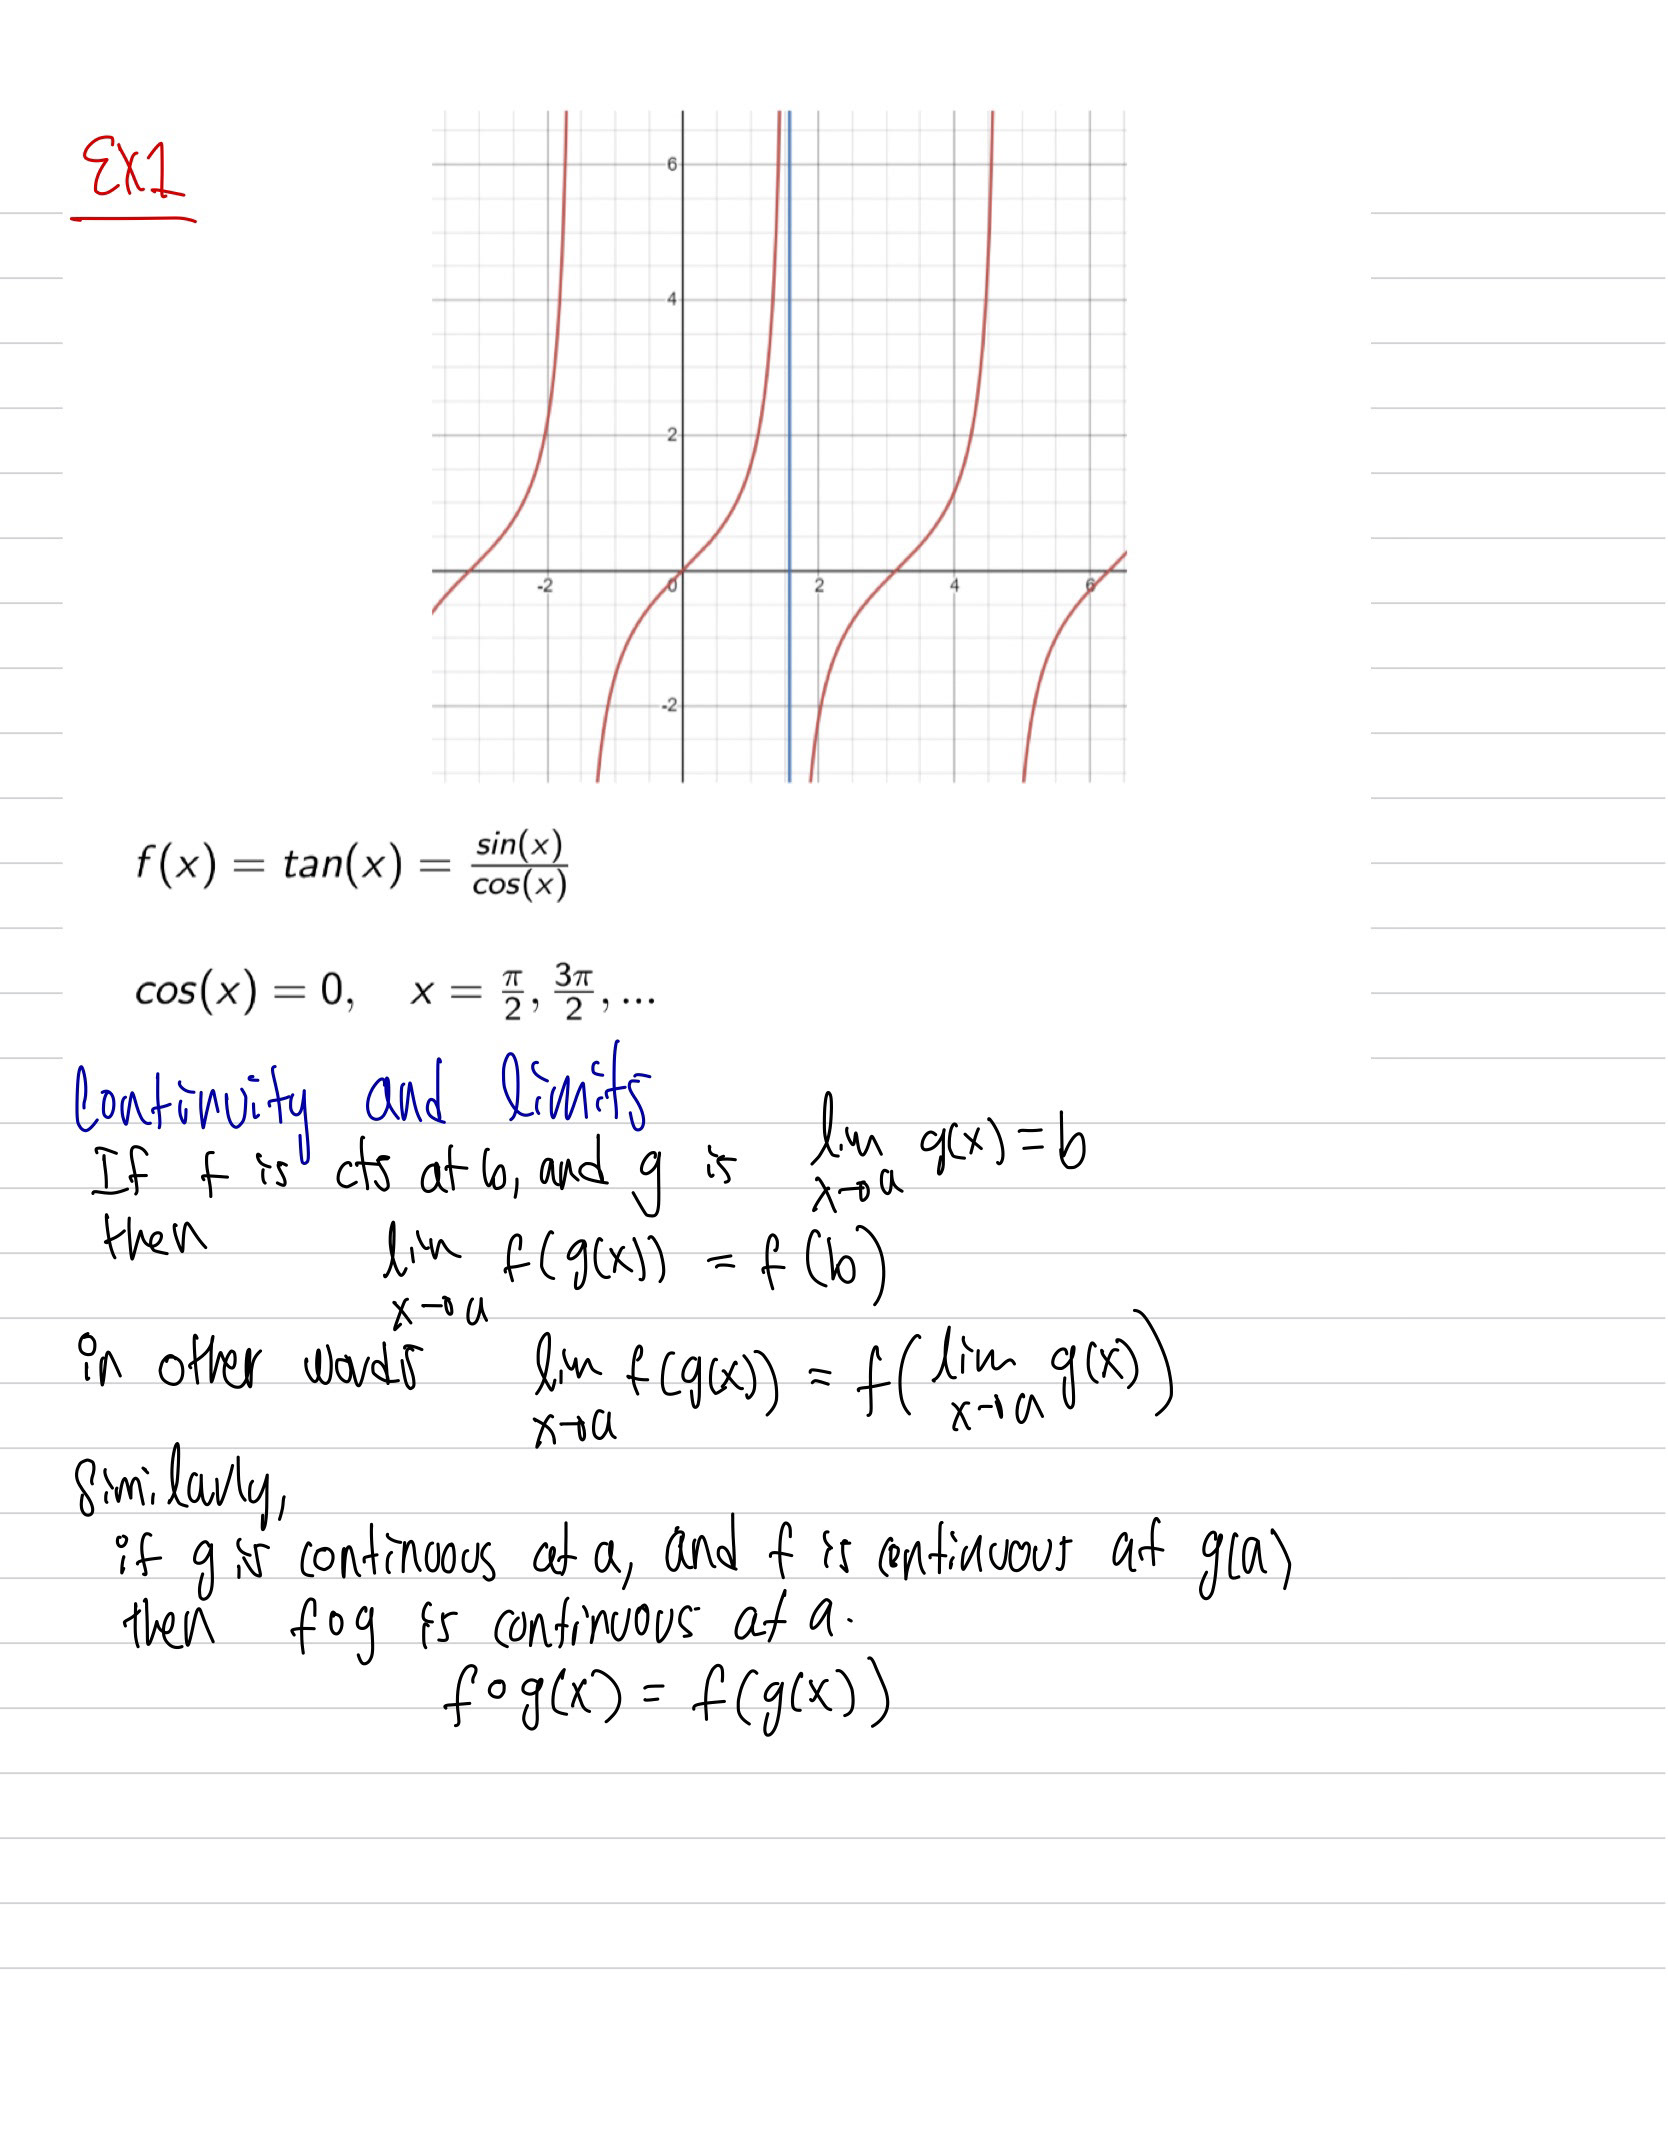 EX1
6
4
2
-2 0 2 4 6
-2
f(x) = tan(x) = sin(x)/cos(x)
cos(x) = 0, x = π/2, 3π/2, ...
Continuity and limits
If f is cts at b, and g is lim x→a g(x) = b
then lim x→a f(g(x)) = f(b)
in other words lim x→a f(g(x)) = f(lim x→a g(x))
Similarly,
if g is continuous at a, and f is continuous at g(a)
then fog is continuous at a.
f∘g(x) = f(g(x))